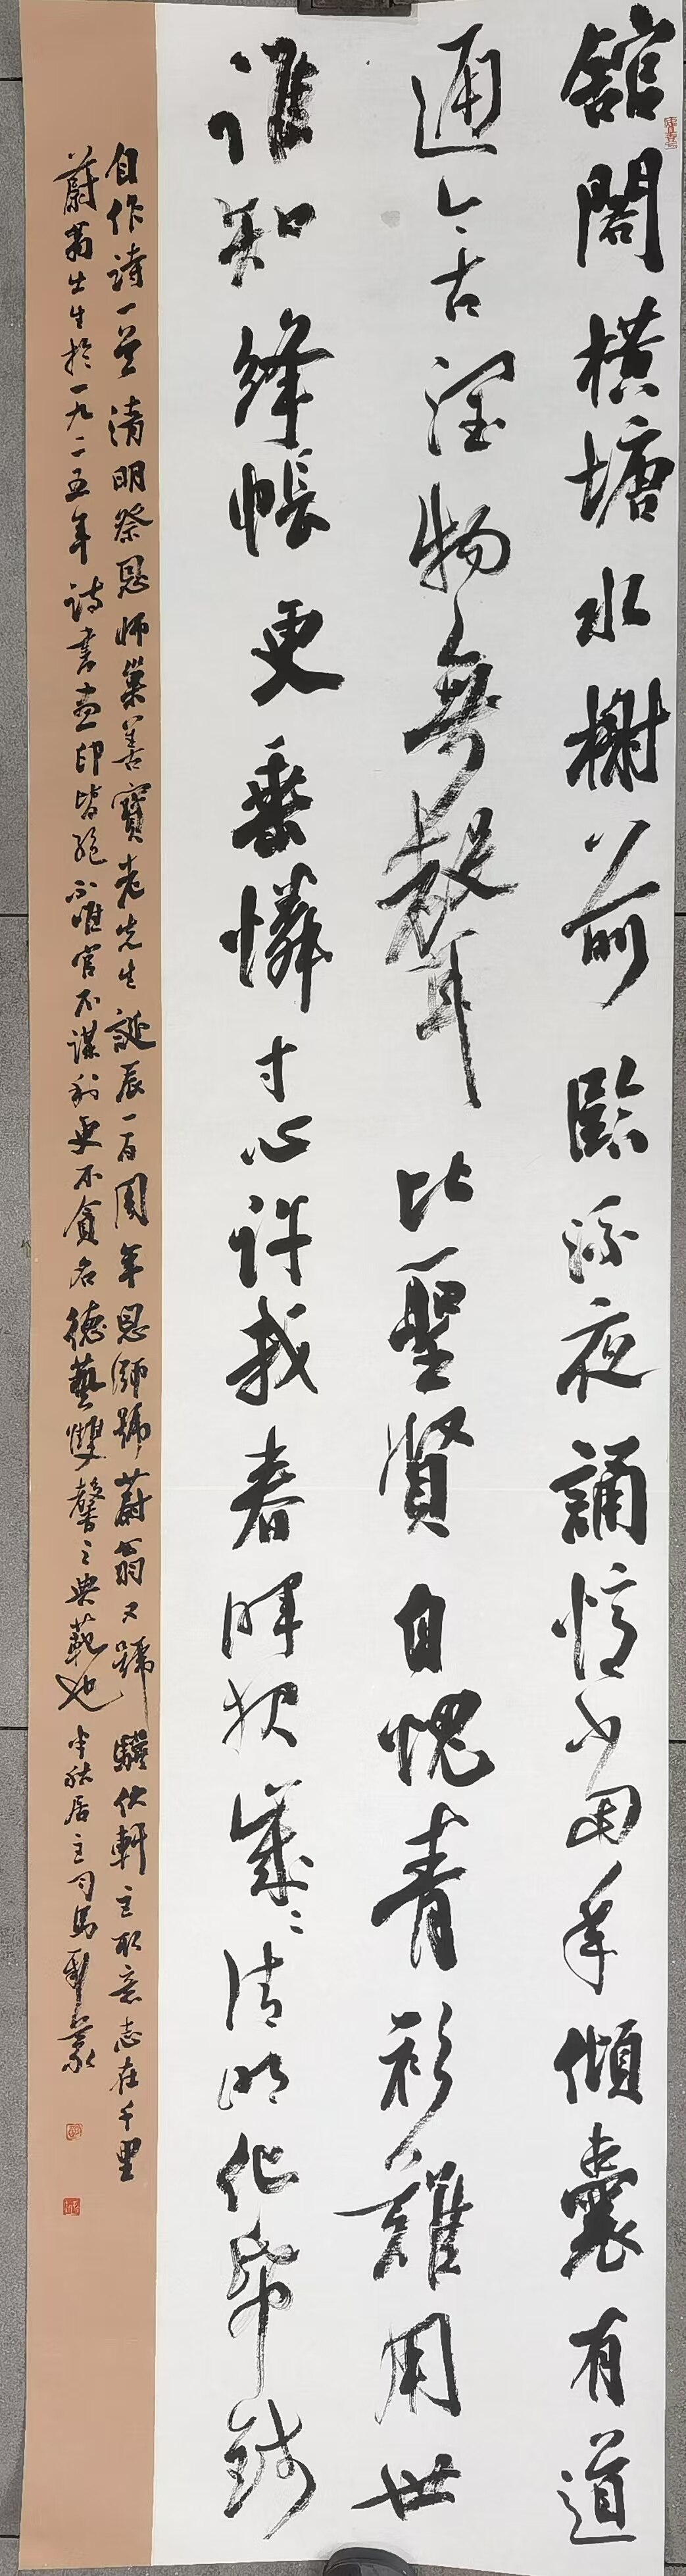 館閣橫塘水榭前臨流夜誦憶當年傾囊有道
通今古潤物無聲比聖賢自愧青衫難用世
誰知絳帳更垂憐寸心許我春暉報歲〻清明化帋錢
自作詩一首清明祭恩師巢善寶老先生誕辰一百周年恩師號蔚翁又號驥伏軒主取意志在千里
蔚翁出生於一九二五年詩書畫印皆絕不唯官不謀利更不貪名德藝雙馨之典範也半居主司馬